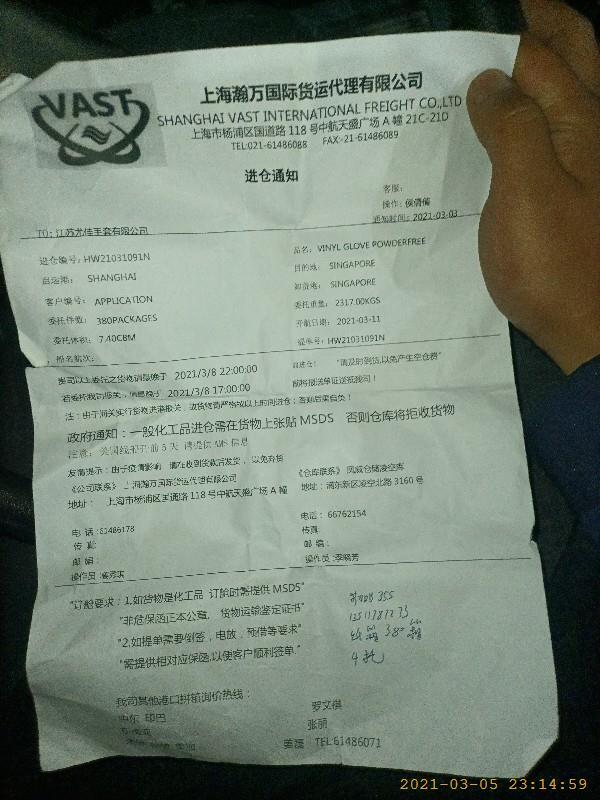 VAST
上海瀚万国际货运代理有限公司
SHANGHAI VAST INTERNATIONAL FREIGHT CO.,LTD
上海市杨浦区国道路 118 号中航天盛广场 A 幢 21C-21D
TEL:021-61486088 FAX:-21-61486089
进仓通知
客服:
操作: 侯倩倩
通知时间: 2021-03-03
TO: 江苏尤佳手套有限公司
进仓编号: HW21031091N
品名: VINYL GLOVE POWDERFREE
启运港: SHANGHAI
目的港: SINGAPORE
卸货港: SINGAPORE
客户编号: APPLICATION
委托重量: 2317.00KGS
委托件数: 380PACKAGES
开航日期: 2021-03-11
委托体积: 7.40CBM
提单号: HW21031091N
船名航次:
2021/3/8 22:00:00
"请及时到货,以免产生空仓费"
2021/3/8 17:00:00
政府通知:一般化工品进仓需在货物上张贴 MSDS 否则仓库将拒收货物
友情提示: 由于疫情影响
《公司联系》 上海瀚万国际货运代理有限公司
《仓库联系》
地址: 上海市杨浦区国道路 118 号中航天盛广场 A 幢
地址: 浦东新区凌空北路 3160 号
电 话: 61486178
电话: 66762154
传 真:
传真:
邮 编:
邮 编:
操作员:
操作员: 李晓芳
"订舱要求: 1.如货物是化工品 订舱时需提供 MSDS"
"非危保函正本公章, 货物运输鉴定证书"
"2.如提单需要倒签, 电放, 预借等要求"
380箱
"需提供相对应保函,以便客户顺利签单."
4托
我司其他港口拼箱询价热线:
罗文祺
中东 印巴
张丽
姜磊 TEL:61486071
2021-03-05 23:14:59